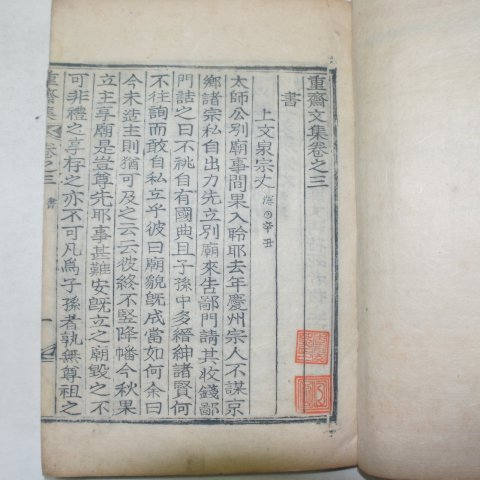 重齋文集卷之三
書
上文泉宗丈
辛丑
太師公別廟事間果入聆耶去年慶州宗人不謀京
鄉諸宗私自出力先立別廟來告鄙門請其收錢鄙
門詰之曰不祧自有國典且子孫中多縉紳諸賢何
不往詢而敢自私立乎彼曰廟貌旣成當如何余曰
今未造主則猶可及止之云云彼終不竪降幡今秋果
立主享廟是豈尊先耶事甚難安旣立之廟毀之不
可非禮之享存之亦不可凡爲子孫者孰無尊祖之
重齋集
卷之三
書
一